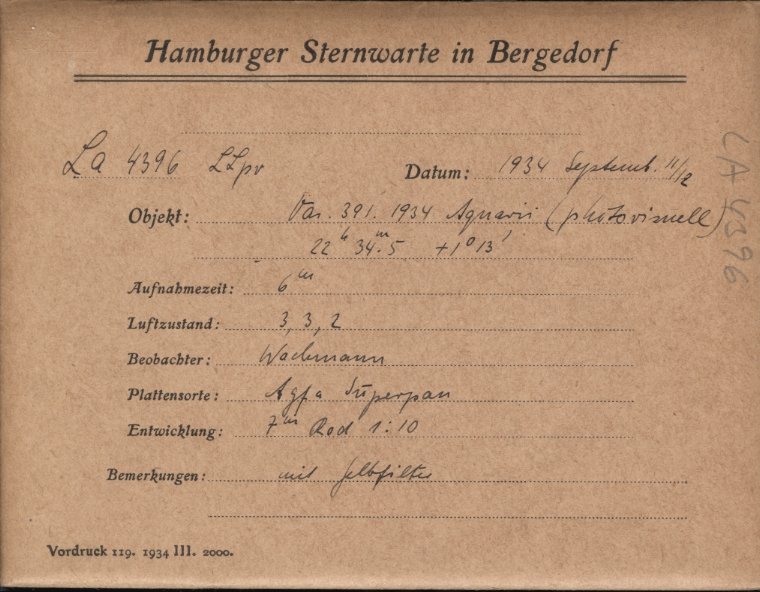 Hamburger Sternwarte in Bergedorf
La 4396 LLpv Datum: 1934 Septemb. 11/12
Objekt: Var. 391. 1934 Aquarii (photovisuell)
22h 34m.5 +1° 13'
Aufnahmezeit: 6m
Luftzustand: 3, 3, 2
Beobachter: Wachmann
Plattensorte: Agfa Superpan
Entwicklung: 7m Rod 1:10
Bemerkungen: mit Gelbfilter
Vordruck 119. 1934 III. 2000.
LA 4396